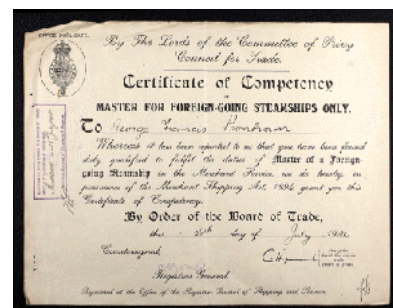 OFFICE DUPLICATE.
By The Lords of the Committee of Privy
Council for Trade.
Certificate of Competency
MASTER FOR FOREIGN-GOING STEAMSHIPS ONLY.
To George Francis
Whereas it has been reported to us that you have been found
duly qualified to fulfil the duties of Master of a Foreign-
going Steamship in the Merchant Service, we do hereby, in
pursuance of the Merchant Shipping Act, 1894, grant you this
Certificate of Competency.
By Order of the Board of Trade,
this day of July
Countersigned,
Registrar General.
Registered at the Office of the Registrar General of Shipping and Seamen.